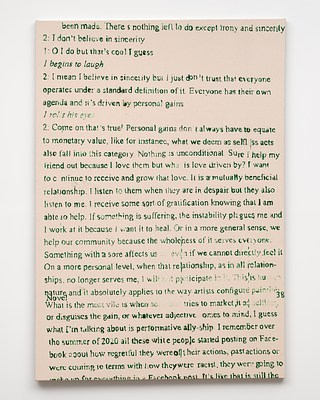 been made. There's nothing left to do except irony and sincerity
2: I don't believe in sincerity
1: O I do but that's cool I guess
I begins to laugh
2: I mean I believe in sincerity but I just don't trust that everyone
operates under a standard definition of it. Everyone has their own
agenda and it's driven by personal gains
I rolls his eyes
2: Come on that's true! Personal gains don't always have to equate
to monetary value, like for instance, what we deem as selfless acts
also fall into this category. Nothing is unconditional. Sure I help my
friend out because I love them but what is love driven by? I want
to continue to receive and grow that love. It is a mutually beneficial
relationship. I listen to them when they are in despair but they also
listen to me. I receive some sort of gratification knowing that I am
able to help. If something is suffering, the instability plagues me and
I work at it because I want it to heal. Or in a more general sense, we
help our community because the wholeness of it serves everyone.
Something with a sore affects us even if we cannot directly feel it
On a more personal level, when that relationship, as in all relation-
ships, no longer serves me, I will not participate in it. This is human
nature and it absolutely applies to the way artists configure
Novel 38
What is the most vile is when tries to market it
or disguises the gain, or whatever adjective comes to mind, I guess
what I'm talking about is performative ally-ship. I remember over
the summer of 2020 all these white people started posting on Face-
book about how regretful they were of their actions, past actions or
were coming to terms with how they were racist, they were going to
make up for everything in a Facebook post. It's like that is still the